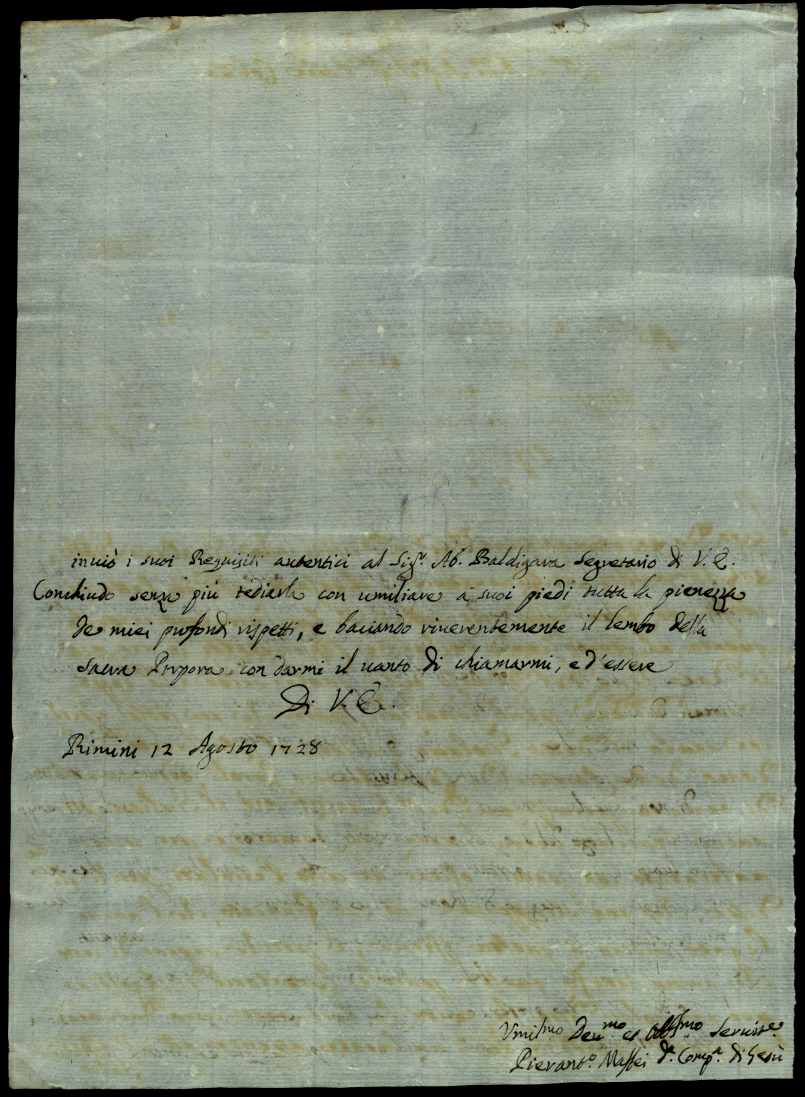 inviò i suoi Requisiti autentici al Sigr. Ab. Baldigara Segretario di V. E.
Conchiudo senza più tediarla con umiliare a suoi piedi tutta la pienezza
de miei profondi rispetti, e baciando riverentemente il lembo della
Sacra Porpora con darmi il vanto di chiamarmi, e d'essere
Di V. E.
Rimini 12 Agosto 1728
Umilmo Devmo et Obbmo Servitre
Pieranto. Maffei d. Compa. di Gesù